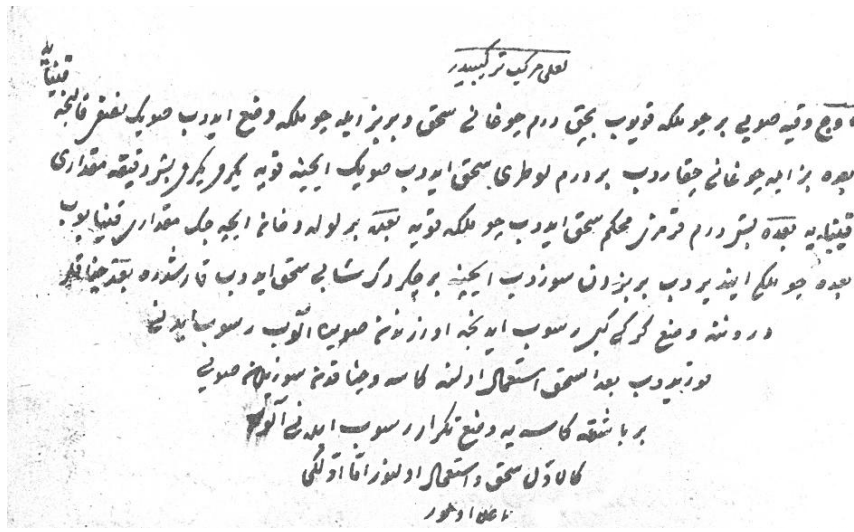 لعلی مرکب ترکیبیدر
اوچ وقیه صویی بر چوملکه قویوب بچق درم چوغانی سحق و بر بز ایله چوملکه وضع ایدوب صویک نصفی قالنجه قینیا
بعده بز ایله چوغانی چقاروب بر درم لوطری سحق ایدوب صویک ایچنه قویه یکرمی یکرمی بش دقیقه مقداری
قینیایه بعده بش درم قرمز محکم سحق ایدوب چوملکه قویه بعده بر لوله دخان ایچه جک مقداری قینیایوب
بعده چوملکی ایندیروب بر بزدن سوزوب ایچنه بر چکردک شابی سحق ایدوب قارشدره بعده چناقلر
درونه وضع کرک کبی رسوب ایدنجه اوزرندن صوینی آلوب رسوب ایدنی
قوریدوب بعد السحق استعمال اولنه کاسه و چناقدن سوزیلان صویی
بر باشقه کاسه یه وضع تکرار رسوب ایدنی آلوب
کالاول سحق و استعمال اولنور اما اولکی
اعلا اولور